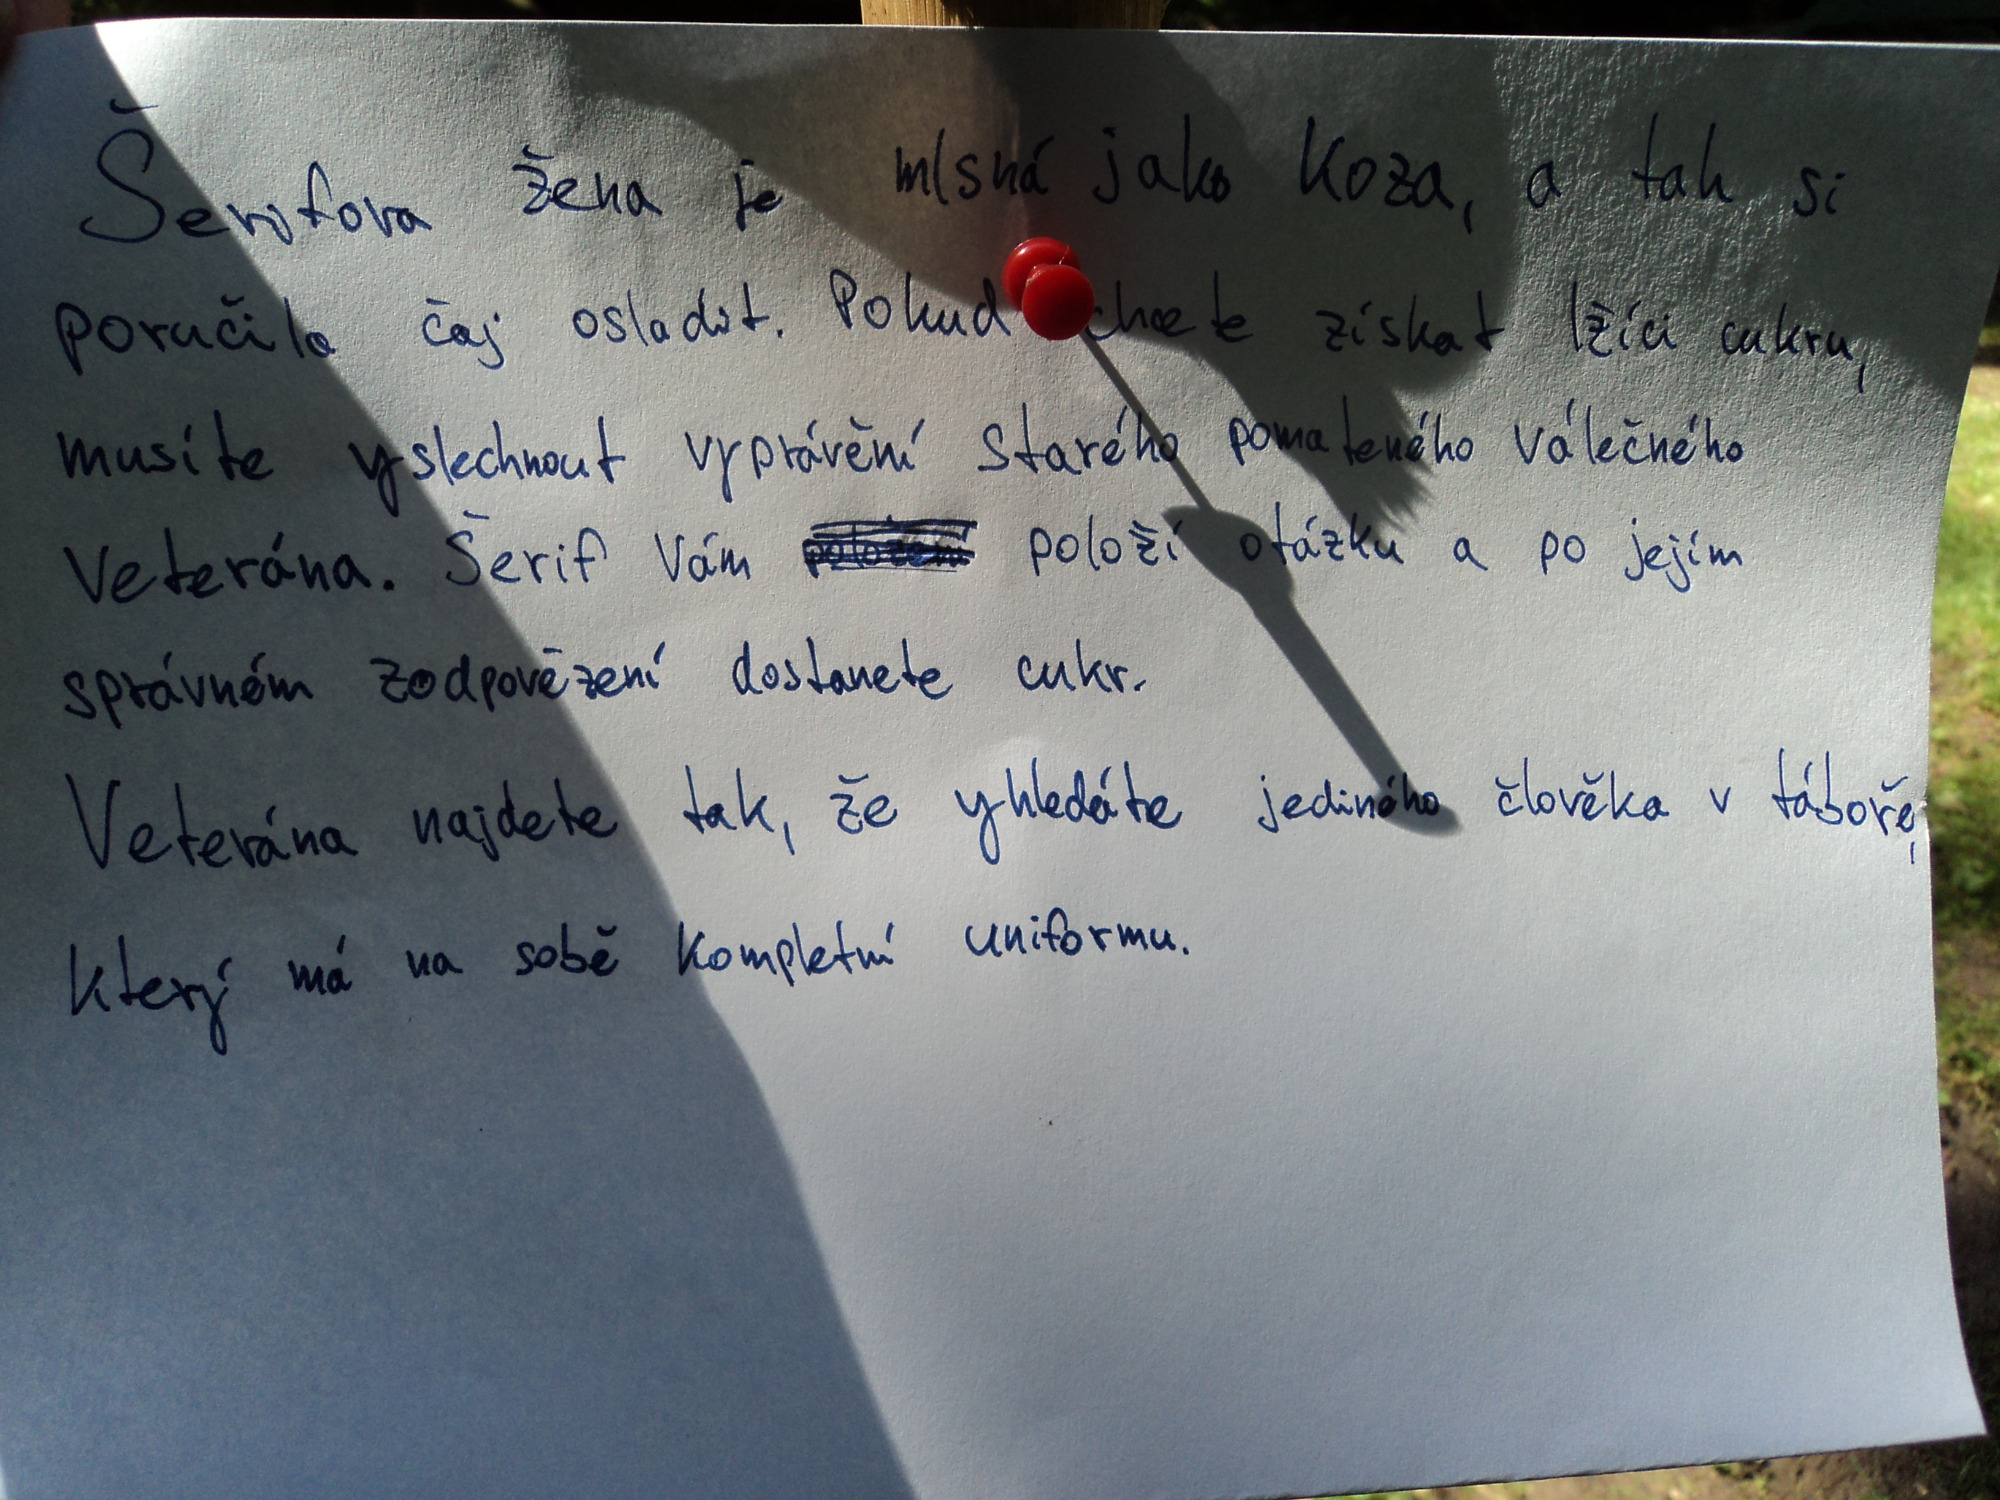 Šerifova žena je mlsná jako koza, a tak si
poručila čaj osladit. Pokud chcete získat lžíci cukru,
musíte vyslechnout vyprávění starého pomateného válečného
veterána. Šerif Vám položí otázku a po jejím
správném zodpovězení dostanete cukr.
Veterána najdete tak, že vyhledáte jediného člověka v táboře,
který má na sobě kompletní uniformu.